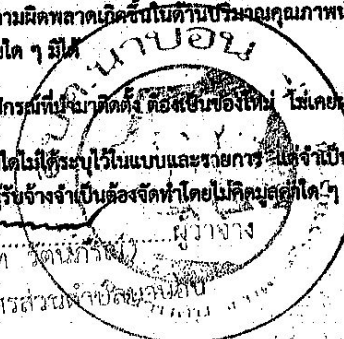 ามผิดพลาดเกิดขึ้นในด้านปริมาณคุณภาพ
ใด ๆ มิได้
นาบอน
ปกรณ์ที่นำมาติดตั้ง ต้องเป็นของใหม่ ไม่เคย
ใดไม่ได้ระบุไว้ในแบบและรายการ แต่จำเป็น
รับจ้างจำเป็นต้องจัดทำโดยไม่คิดมูลค่าใด ๆ
ผู้ว่าจ้าง
รส่วนตำบลนาบอน